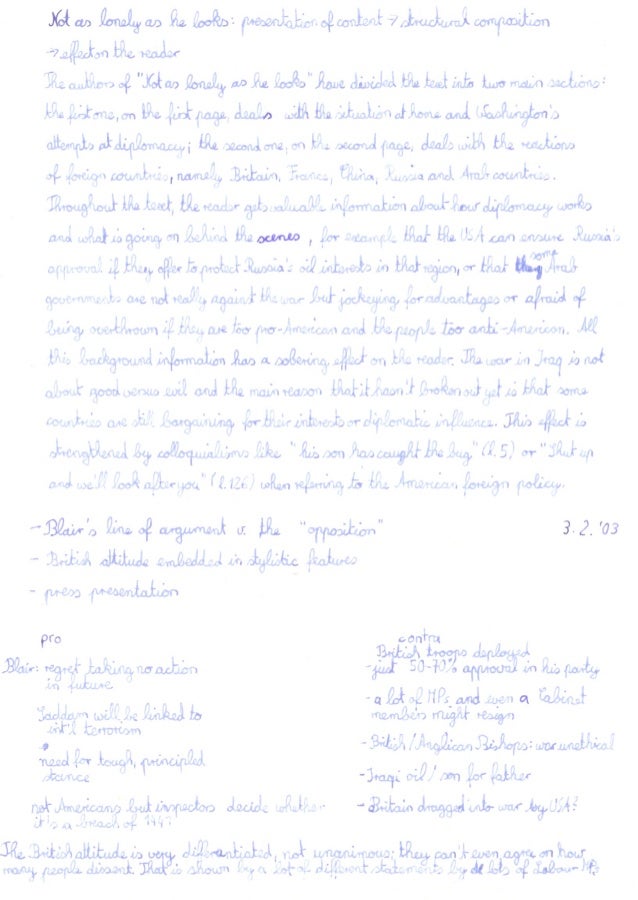 Not as lonely as he looks: presentation of content → structural composition
→ effect on the reader
The authors of "Not as lonely as he looks" have divided the text into two main sections:
the first one, on the first page, deals with the situation at home and Washington's
attempts at diplomacy; the second one, on the second page, deals with the reactions
of foreign countries, namely Britain, France, China, Russia and Arab countries.
Throughout the text, the reader gets valuable information about how diplomacy works
and what is going on behind the scenes, for example that the USA can ensure Russia's
approval if they offer to protect Russia's oil interests in that region, or that some Arab
governments are not really against the war but jockeying for advantages or afraid of
being overthrown if they are too pro-American and the people too anti-American. All
this background information has a sobering effect on the reader. The war in Iraq is not
about good versus evil and the main reason that it hasn't broken out yet is that some
countries are still bargaining for their interests or diplomatic influence. This effect is
strengthened by colloquialisms like "his son has caught the bug" (l. 5) or "Shut up
and we'll look after you" (l. 126) when referring to the American foreign policy.
- Blair's line of argument v. the "opposition" 3.2.'03
- British attitude embedded in stylistic features
- press presentation
pro
Blair: regret taking no action
in future
Saddam will be linked to
int'l terrorism
need for tough, principled
stance
not Americans but inspectors decide whether
it's a breach of 1441
contra
British troops deployed
- just 50-70% approval in his party
- a lot of MPs and even a Cabinet
members might resign
- British/Anglican Bishops: war unethical
- Iraqi oil / son for father
- Britain dragged into war by USA?
The British attitude is very differentiated, not unanimous; they can't even agree on how
many people dissent. That is shown by a lot of different statements by lots of Labour MPs